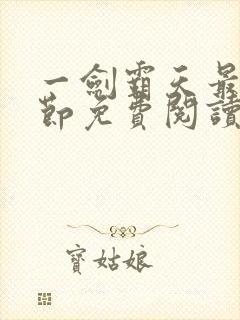 一劍霸天最
節免費閱讀
寶姑娘